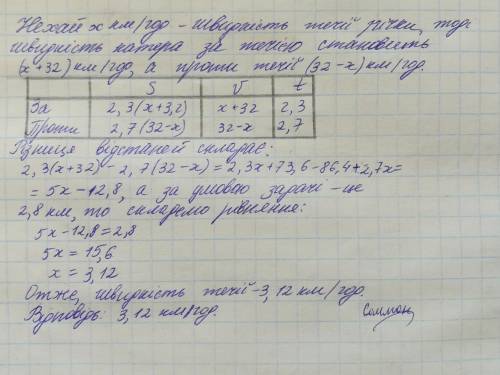 Нехай х км/год - швидкість течії річки, тоді
швидкість катера за течією становить
(х+32) км/год, а проти течії (32-х) км/год.
S V t
За 2,3(х+3,2) х+32 2,3
Проти 2,7(32-х) 32-х 2,7
Різниця відстаней складає:
2,3(х+32) - 2,7(32-х) = 2,3х+73,6-86,4+2,7х=
= 5х-12,8, а за умовою задачі - це
2,8 км, то складемо рівняння:
5х-12,8=2,8
5х = 15,6
х = 3,12
Отже, швидкість течії - 3,12 км/год.
Відповідь: 3,12 км/год.